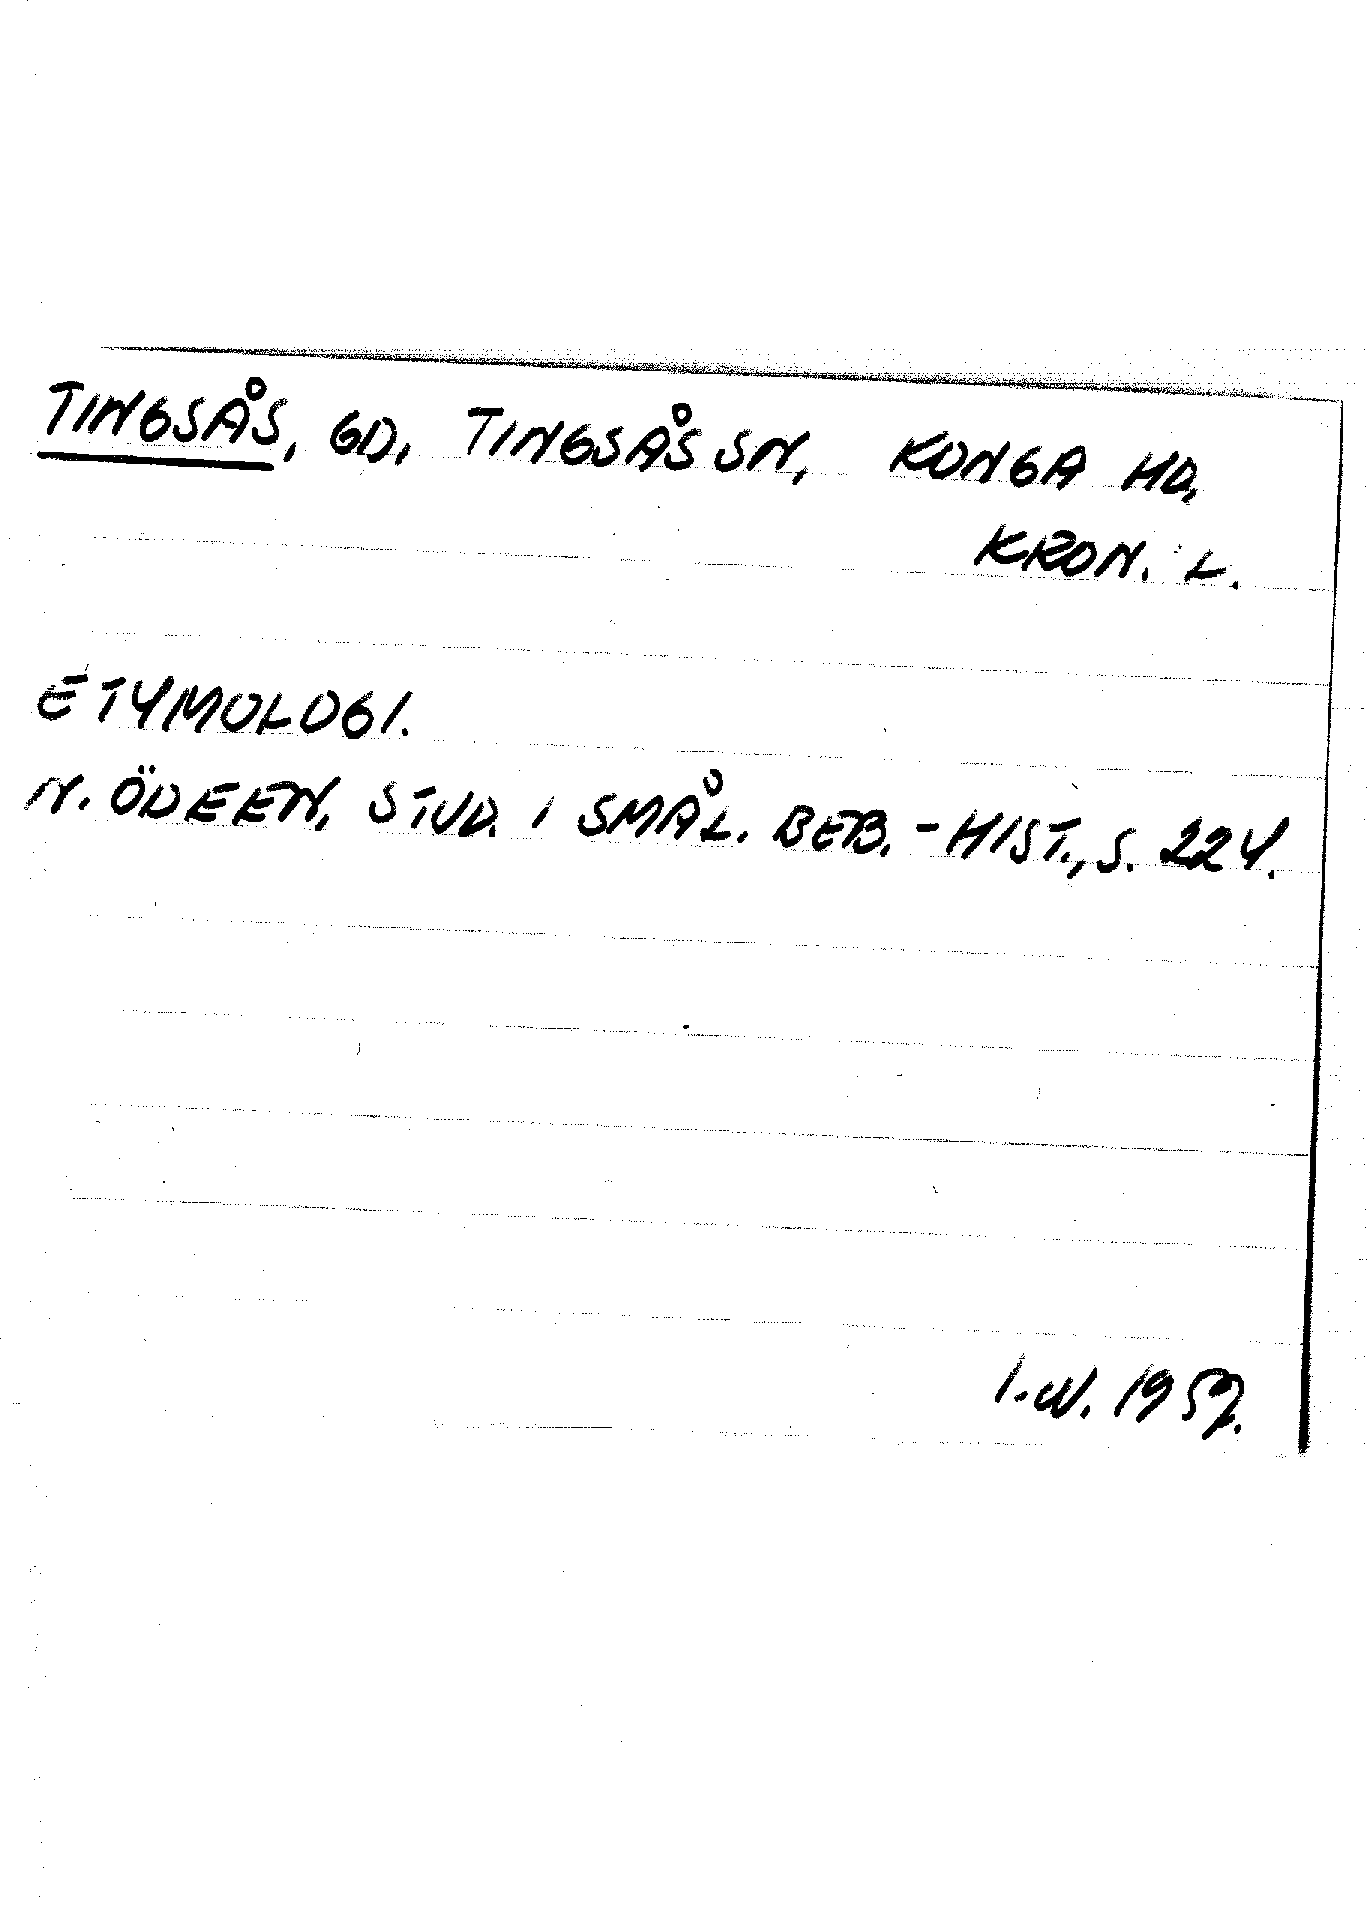 TINGSÅS, GD, TINGSÅS SN, KONGA HD,
KRON. L.
ETYMOLOGI.
N. ÖDEEN, STUD. I SMÅL. BEB.-HIST., S. 224.
I.W. 1957.